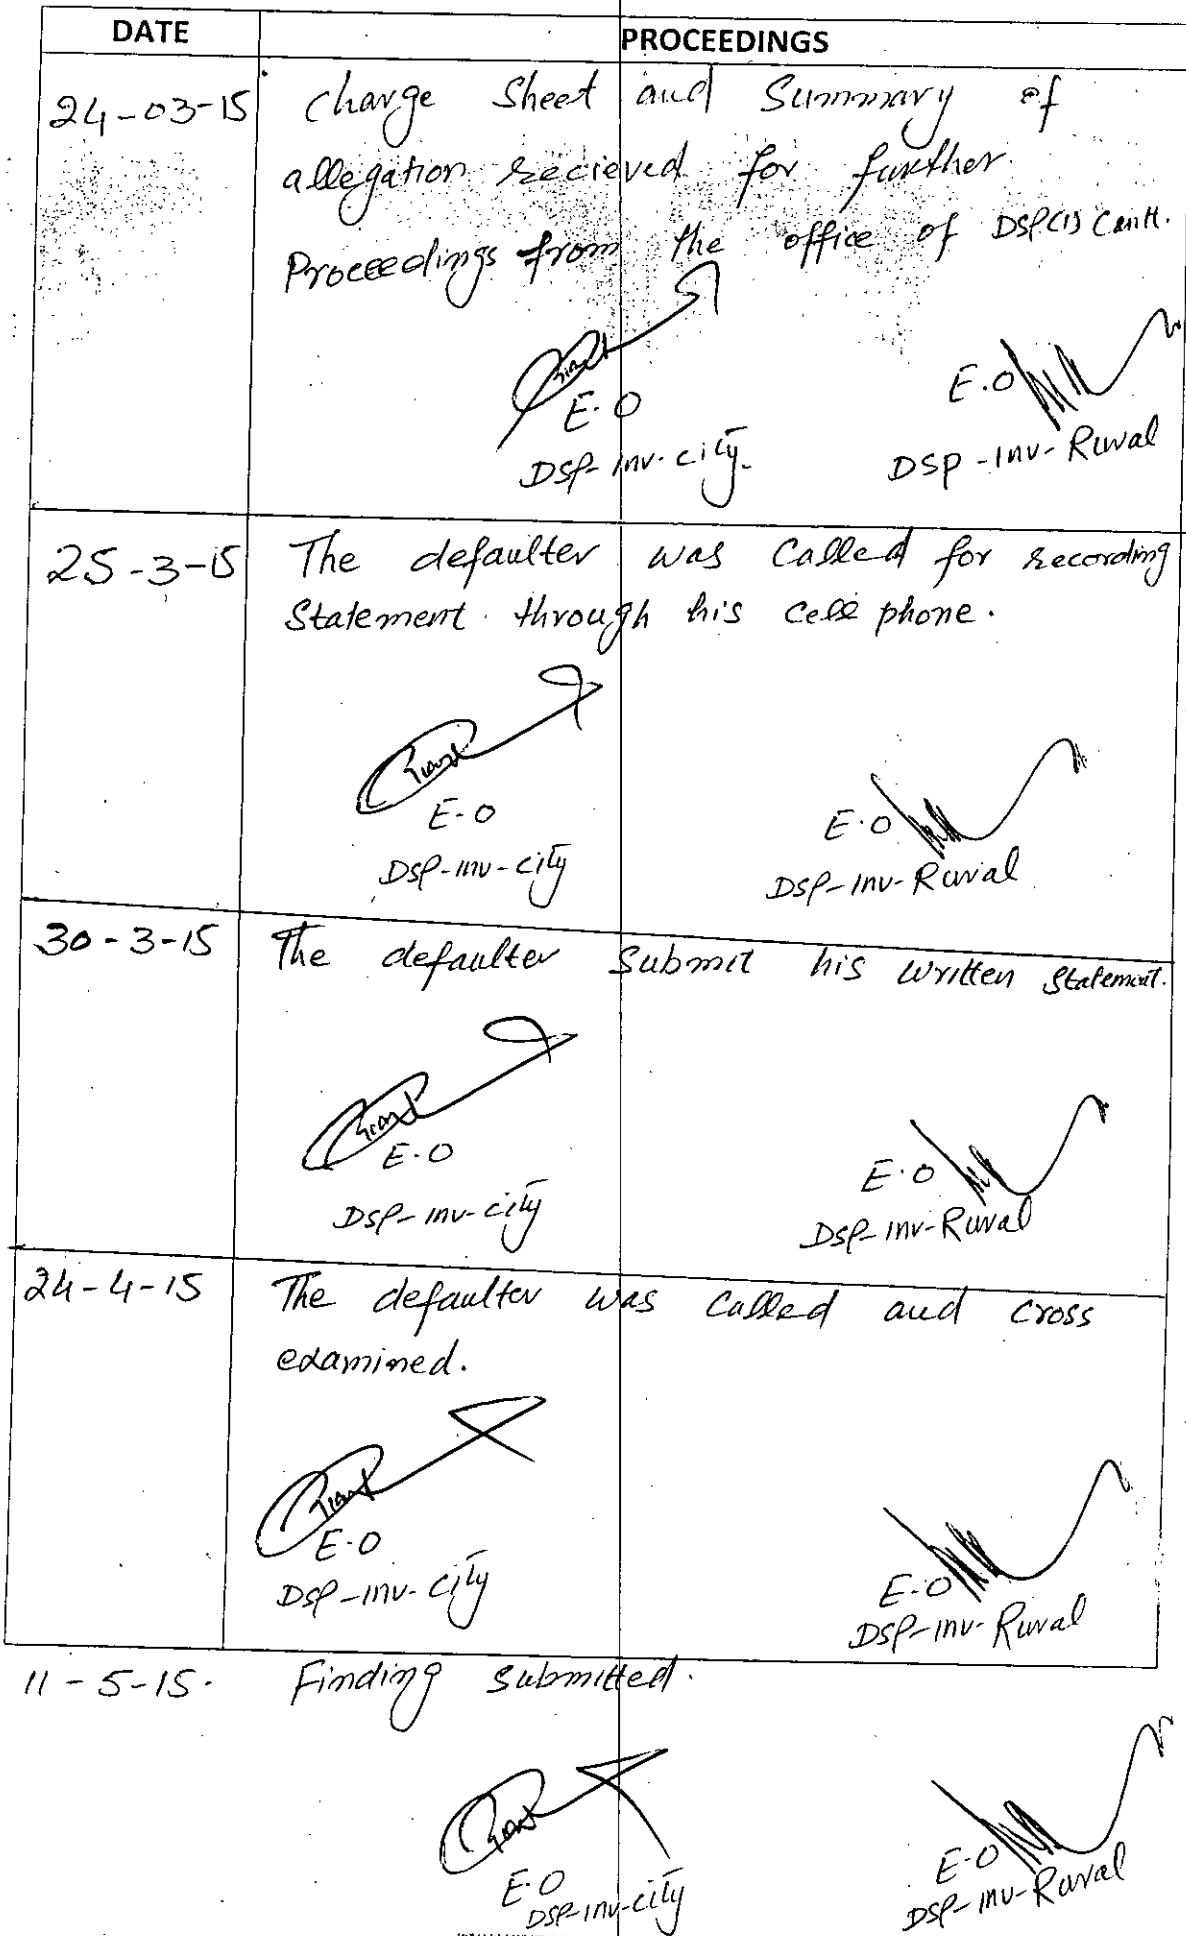 DATE PROCEEDINGS
24-03-15 Charge Sheet and Summary of
allegation recieved for further
Proceedings from the office of DSP(I) Cantt.
E.O E.O
DSP-Inv-City. DSP-Inv-Rural
25-3-15 The defaulter was Called for recording
Statement through his Cell phone.
E-O E.O
DSP-Inv-City DSP-Inv-Rural
30-3-15 The defaulter Submit his written Statement.
E.O E.O
DSP-Inv-City DSP-Inv-Rural
24-4-15 The defaulter was Called and cross
examined.
E-O E-O
DSP-Inv-City DSP-Inv-Rural
11-5-15. Finding Submitted.
E.O E-O
DSP-Inv-City DSP-Inv-Rural